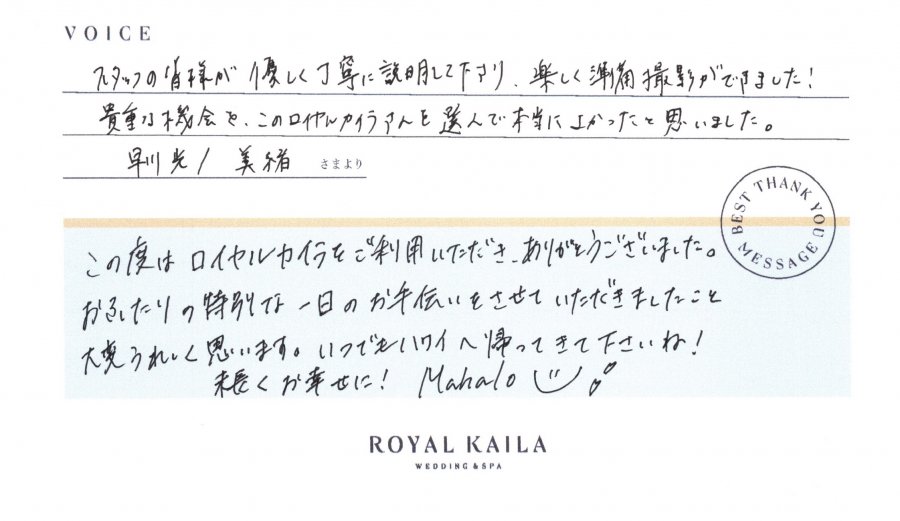 VOICE
スタッフの皆様が優しく丁寧に説明して下さり、楽しく準備撮影ができました！
貴重な機会を、このロイヤルカイラさんを選んで本当によかったと思いました。
早川光 / 美緒 さまより
BEST THANK YOU MESSAGE
この度はロイヤルカイラをご利用いただき、ありがとうございました。
おふたりの特別な一日のお手伝いをさせていただきましたこと
大変うれしく思います。いつでもハワイへ帰ってきて下さいね！
末長くお幸せに！ Mahalo
ROYAL KAILA
WEDDING & SPA